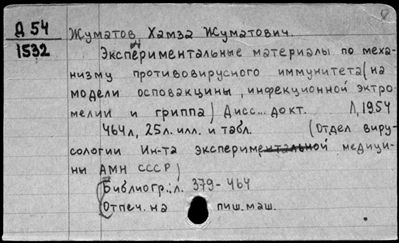 8
Д 54
1532
Жуматов, Хамза Жуматович.
Экспериментальные материалы по меха-
низму противовирусного иммунитета (на
модели осповакцины, инфекционной эктро-
мелии и гриппа) Дисс... докт. Л, 1954
464л, 25л. илл. и табл. (Отдел виру-
сологии Ин-та экспериментальной медици-
ны АМН СССР)
Библиогр.: л. 379-464
Отпеч. на пиш. маш.